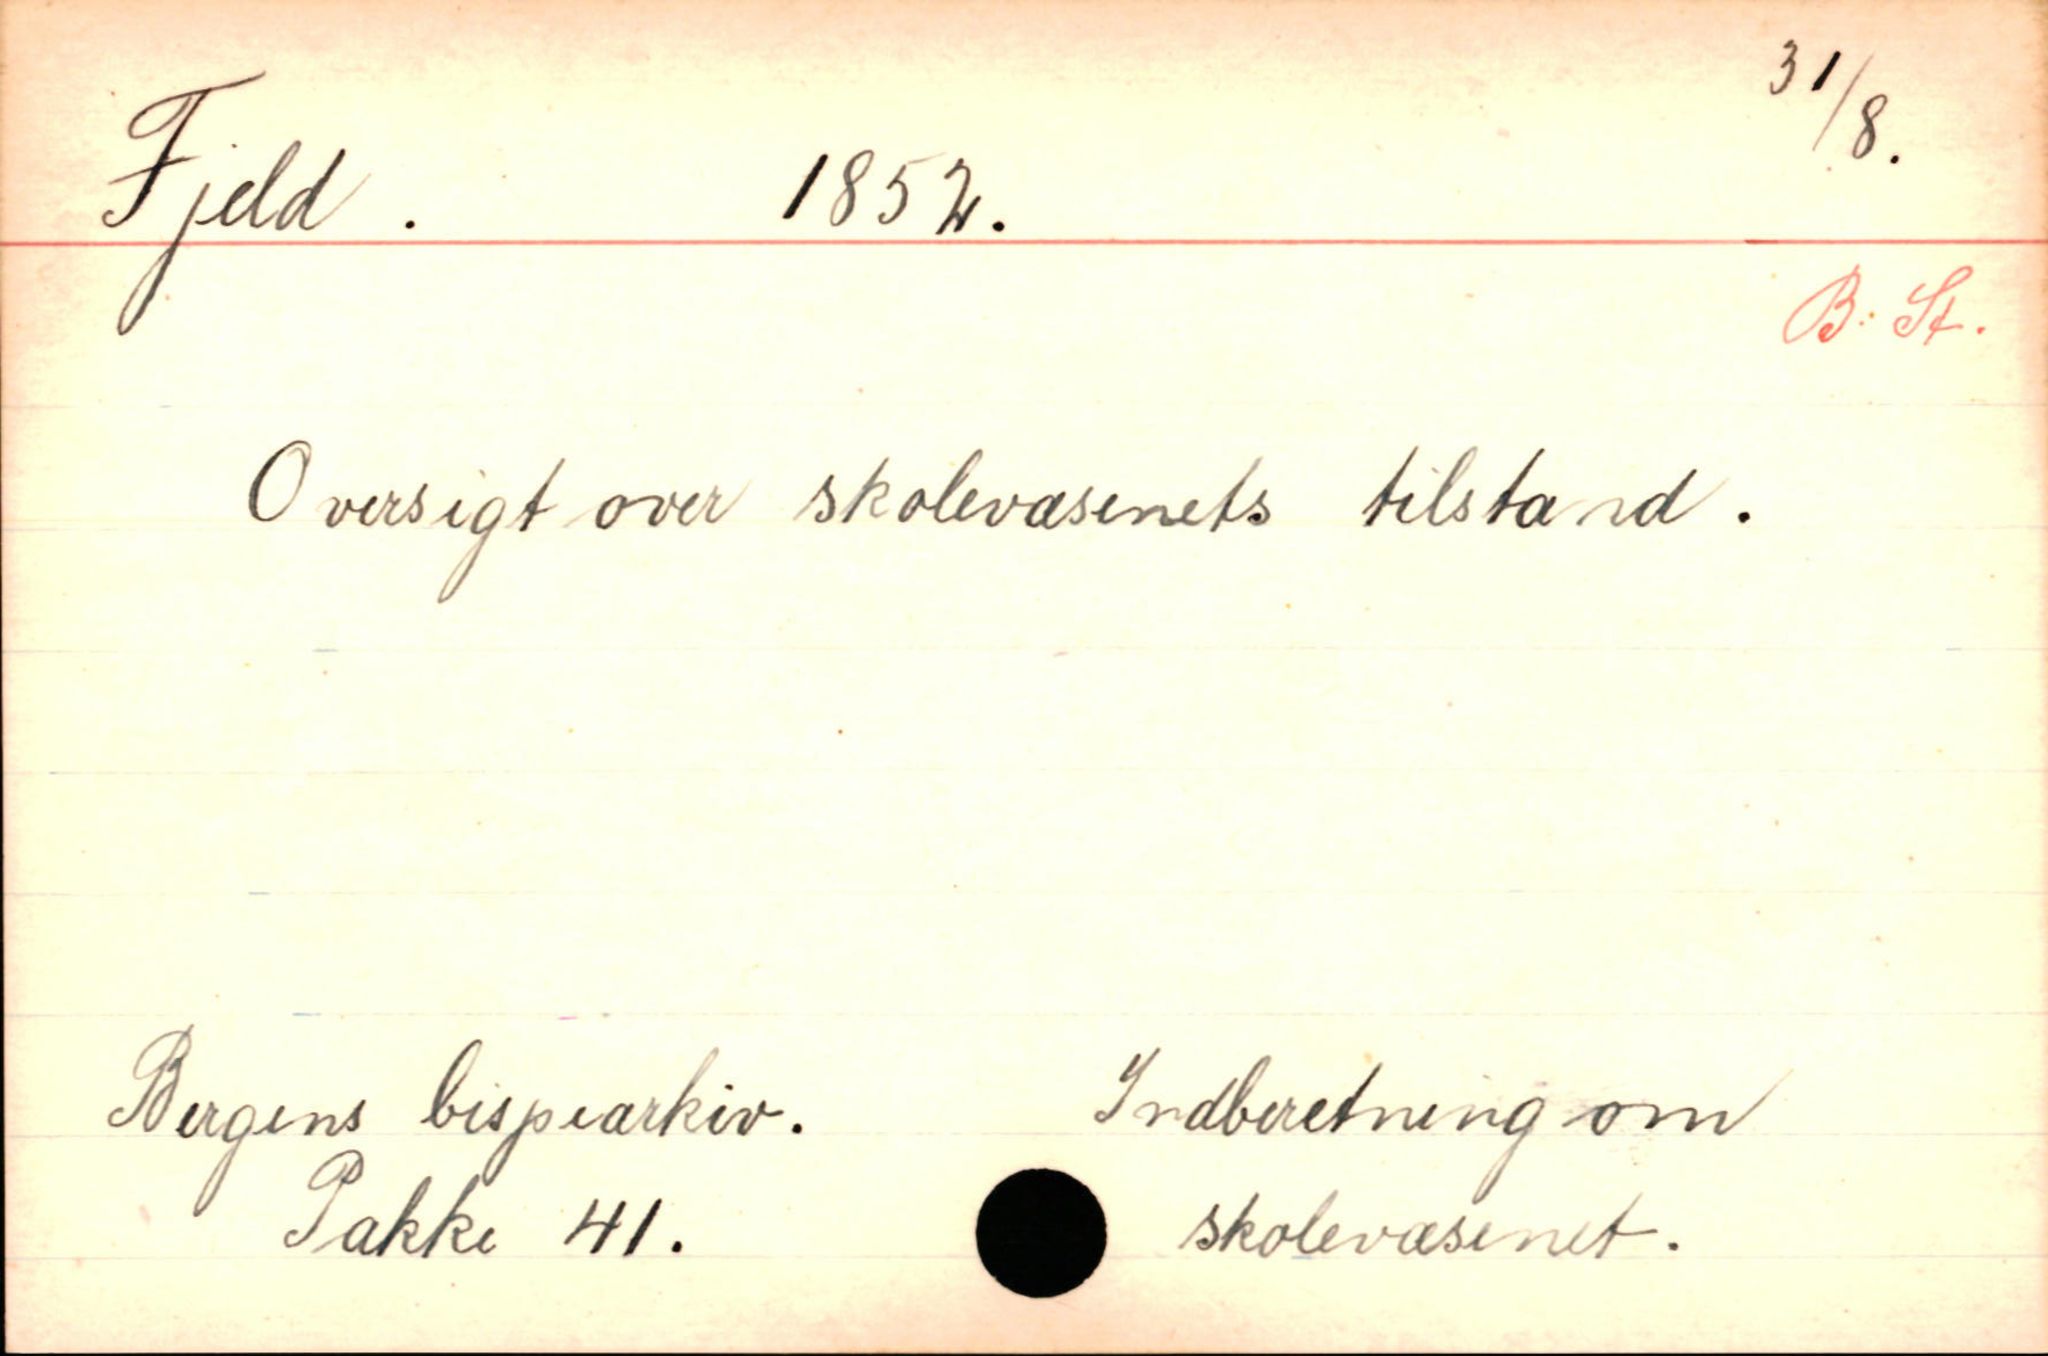 31/8.
Fjeld. 1852.
B. St.
Oversigt over skolevæsenets tilstand.
Bergens bispearkiv. Indberetning om
Pakke 41. skolevæsenet.